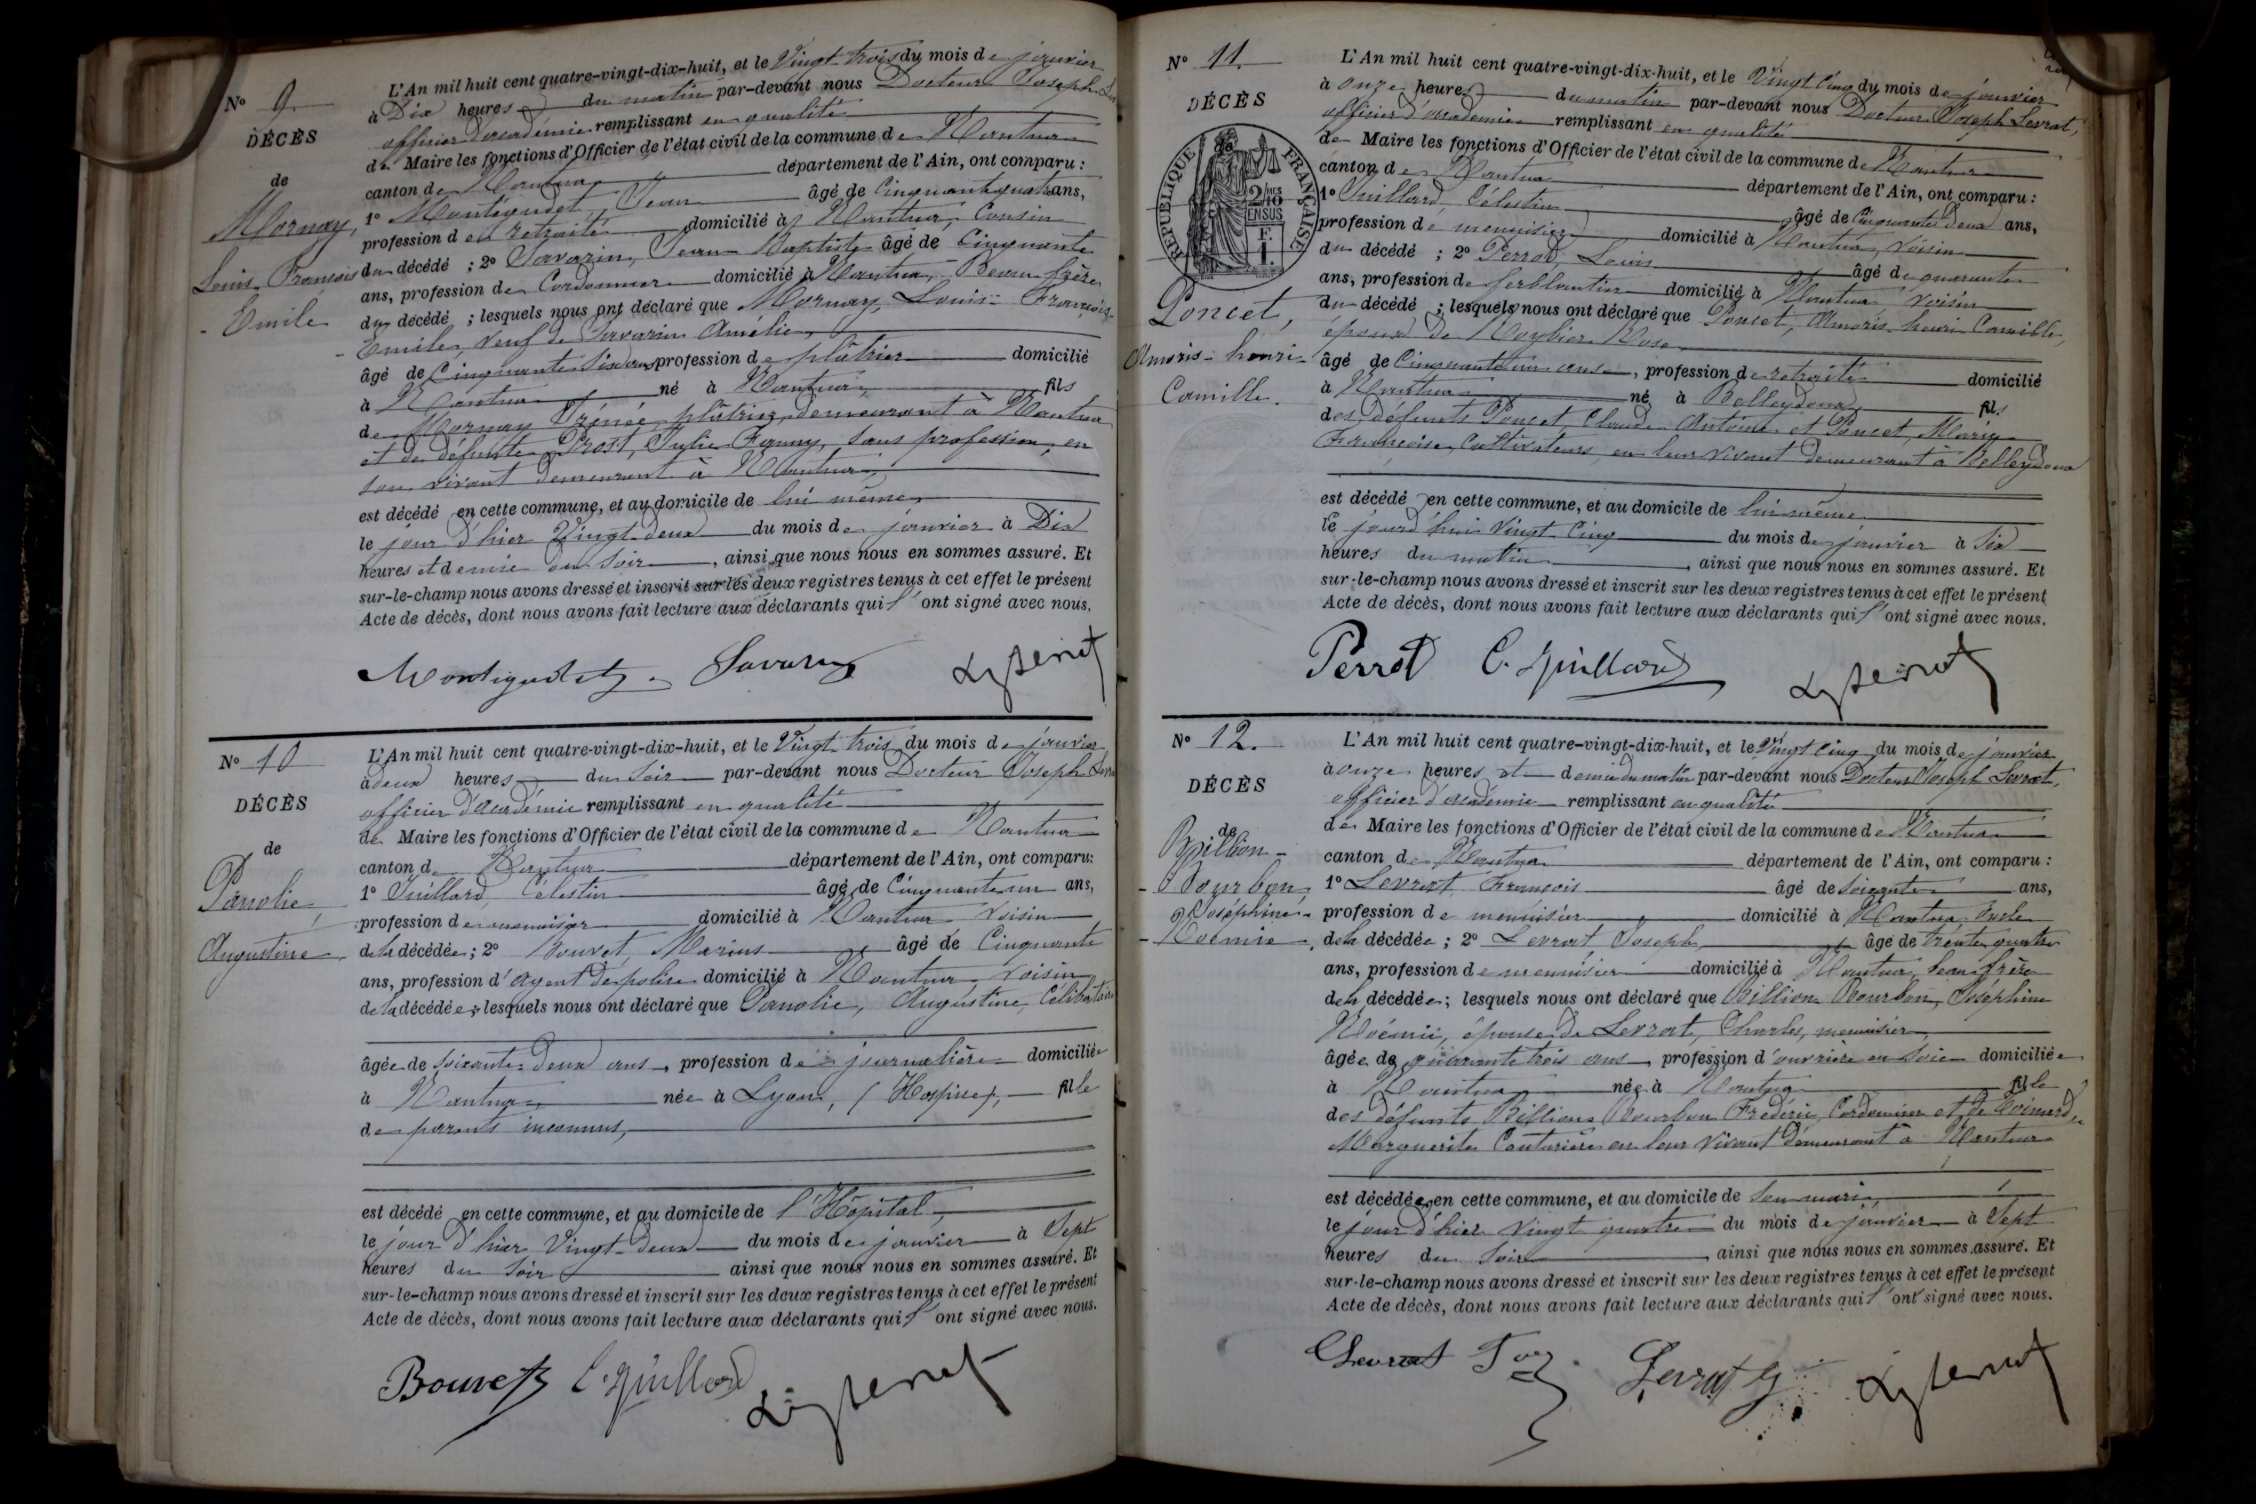 N° 9.
DÉCÈS
de
Mornay,
Louis-François
-Emile
L'An mil huit cent quatre-vingt-dix-huit, et le Vingt-trois du mois de janvier
à Dix heures du matin par-devant nous Docteur Joseph
officier d'académie remplissant en qualité
de Maire les fonctions d'Officier de l'état civil de la commune de Nantua
canton de Nantua département de l'Ain, ont comparu :
1° Jean âgé de Cinquante quatre ans,
profession d en retraite domicilié à Nantua, Cousin
du décédé ; 2° Savarin, Jean Baptiste âgé de Cinquante
ans, profession de Cordonnier domicilié à Nantua, Beau frère
du décédé ; lesquels nous ont déclaré que Mornay, Louis-François-
-Emile, veuf de Savarin Amélie,
âgé de Cinquante six ans profession de plâtrier domicilié
à Nantua né à Nantua, fils
de Mornay Irénée, plâtrier, demeurant à Nantua
et de défunte Prost, Julie Fanny, sans profession, en
son vivant demeurant à Nantua,
est décédé en cette commune, et au domicile de lui même,
le jour d'hier Vingt-deux du mois de janvier à Dix
heures et demie du soir, ainsi que nous nous en sommes assuré. Et
sur-le-champ nous avons dressé et inscrit sur les deux registres tenus à cet effet le présent
Acte de décès, dont nous avons fait lecture aux déclarants qui l'ont signé avec nous.
Savarin
N° 10
DÉCÈS
de
Panolie,
Augustine
L'An mil huit cent quatre-vingt-dix-huit, et le Vingt-trois du mois de janvier
à deux heures du soir par-devant nous Docteur Joseph
officier d'académie remplissant en qualité
de Maire les fonctions d'Officier de l'état civil de la commune de Nantua
canton de Nantua département de l'Ain, ont comparu :
1° Juillard, Célestin âgé de Cinquante un ans,
profession de menuisier domicilié à Nantua Voisin
de la décédée ; 2° Bouvet, Marius âgé de Cinquante
ans, profession d'agent de police domicilié à Nantua voisin
de la décédée ; lesquels nous ont déclaré que Panolie, Augustine, Célibataire
âgée de soixante-deux ans, profession de journalière domiciliée
à Nantua, née à Lyon, (Hospice), fille
de parents inconnus,
est décédé en cette commune, et au domicile de l'Hôpital,
le jour d'hier Vingt-deux du mois de janvier à Sept
heures du soir ainsi que nous nous en sommes assuré. Et
sur-le-champ nous avons dressé et inscrit sur les deux registres tenus à cet effet le présent
Acte de décès, dont nous avons fait lecture aux déclarants qui l'ont signé avec nous.
Bouvet C. Juillard
N° 11.
DÉCÈS
RÉPUBLIQUE FRANÇAISE
2/10 MES
EN SUS
F.
1.
Poncet,
Amoris-henri-
Camille.
L'An mil huit cent quatre-vingt-dix-huit, et le Vingt Cinq du mois de janvier
à onze heures du matin par-devant nous Docteur Joseph Levrat,
officier d'académie remplissant en qualité
de Maire les fonctions d'Officier de l'état civil de la commune de Nantua
canton de Nantua département de l'Ain, ont comparu :
1° Juillard, Célestin âgé de Cinquante Deux ans,
profession de menuisier domicilié à Nantua, Voisin
du décédé ; 2° Perrod, Louis âgé de quarante
ans, profession de ferblantier domicilié à Nantua Voisin
du décédé ; lesquels nous ont déclaré que Poncet, Amoris-henri-Camille,
époux de Rose,
âgé de Cinquante un ans, profession de retraité domicilié
à Nantua né à Belleydoux fils
des défunts Poncet, Claude Antoine et Poncet, Marie
Françoise, Cultivateurs, en leur vivant demeurant à Belleydoux
est décédé en cette commune, et au domicile de lui même
le jourd'hui Vingt Cinq du mois de janvier à Six
heures du matin, ainsi que nous nous en sommes assuré. Et
sur-le-champ nous avons dressé et inscrit sur les deux registres tenus à cet effet le présent
Acte de décès, dont nous avons fait lecture aux déclarants qui l'ont signé avec nous.
Perrod C. Juillard
N° 12.
DÉCÈS
de
Billion-
-Bourbon,
Joséphine-
-Noémie.
L'An mil huit cent quatre-vingt-dix-huit, et le Vingt Cinq du mois de janvier
à onze heures et demie du matin par-devant nous Docteur Joseph Levrat,
officier d'académie remplissant en qualité
de Maire les fonctions d'Officier de l'état civil de la commune de Nantua
canton de Nantua département de l'Ain, ont comparu :
1° Levrat François âgé de Soixante ans,
profession de menuisier domicilié à Nantua, Oncle
de la décédée ; 2° Levrat Joseph, âgé de trente quatre
ans, profession de menuisier domicilié à Nantua, beau frère
de la décédée ; lesquels nous ont déclaré que Billion Bourbon, Joséphine
Noémie, épouse de Levrat, Charles, menuisier,
âgée de quarante trois ans profession d'ouvrière en soie domiciliée
à Nantua née à Nantua fille
des défunts Billion Bourbon Frédéric, Cordonnier et de
Marguerite Couturière en leur vivant demeurant à Nantua
est décédée en cette commune, et au domicile de son mari,
le jour d'hier vingt quatre du mois de janvier à Sept
heures du soir ainsi que nous nous en sommes assuré. Et
sur-le-champ nous avons dressé et inscrit sur les deux registres tenus à cet effet le présent
Acte de décès, dont nous avons fait lecture aux déclarants qui l'ont signé avec nous.
Levrat Levrat